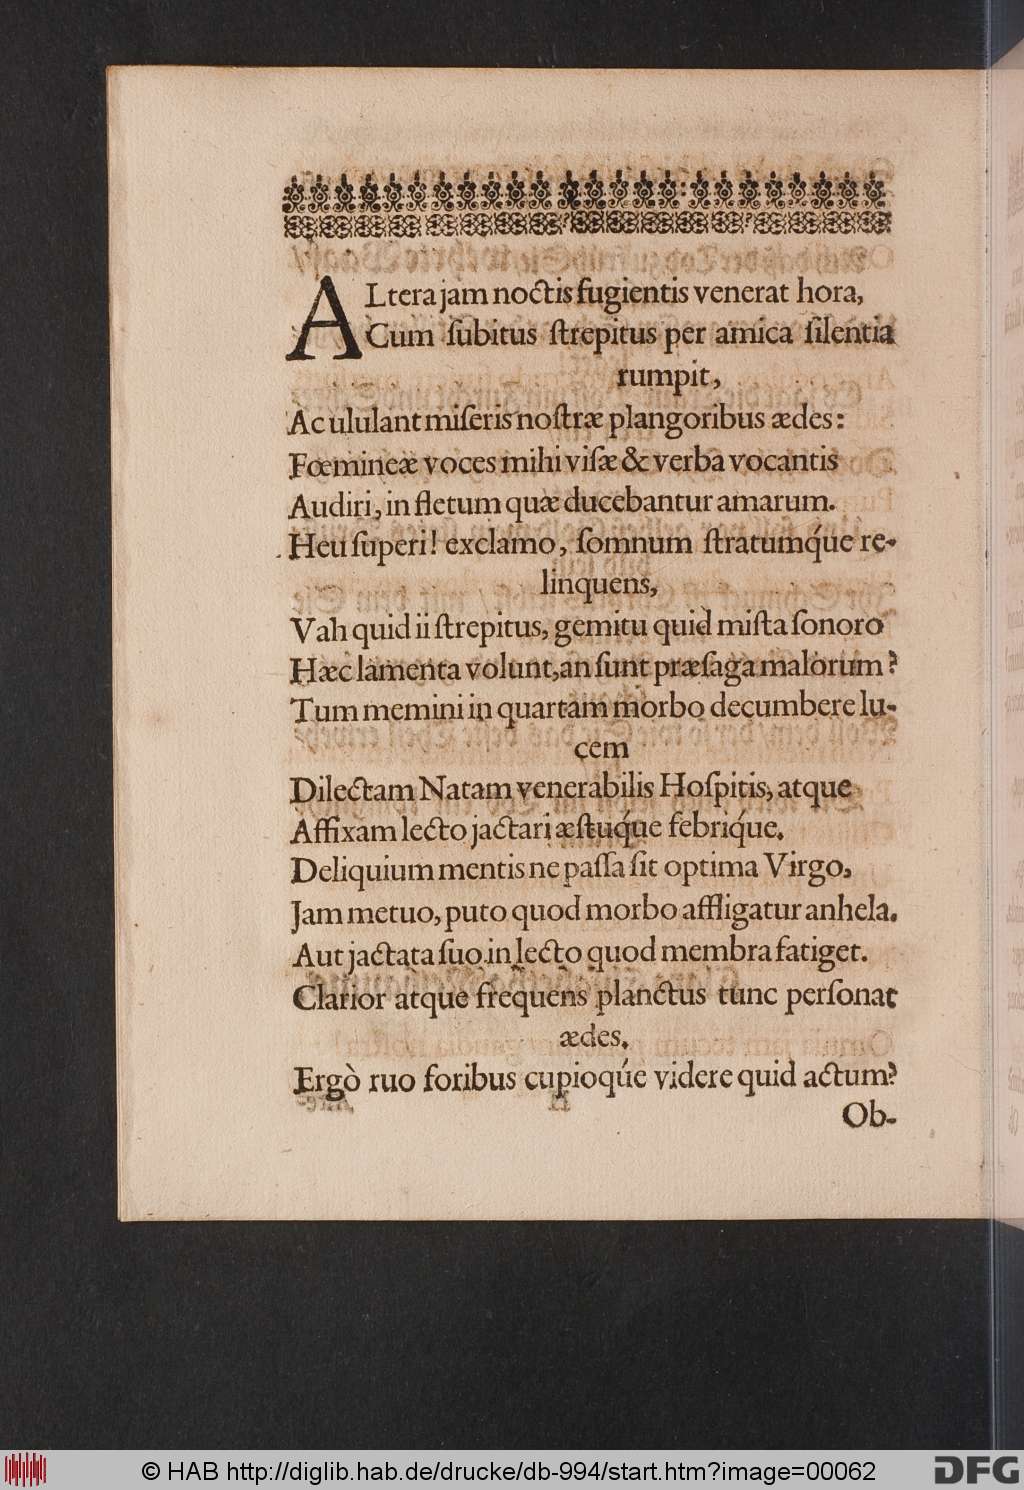 ALtera jam noctis fugientis venerat hora,
Cum ſubitus ſtrepitus per amica ſilentia
rumpit,
Ac ululant miſeris noſtræ plangoribus ædes:
Fœmineæ voces mihi viſæ & verba vocantis
Audiri, in fletum quæ ducebantur amarum.
Heu ſuperi! exclamo, ſomnum ſtratumq́ue re-
linquens,
Vah quid ii ſtrepitus, gemitu quid miſta ſonoro
Hæc lamenta volunt, an ſunt præſaga malorum?
Tum memini in quartam morbo decumbere lu-
cem
Dilectam Natam venerabilis Hoſpitis, atque
Affixam lecto jactari æſtuq́ue febriq́ue.
Deliquium mentis ne paſſa ſit optima Virgo,
Jam metuo, puto quod morbo affligatur anhela.
Aut jactata ſuo in lecto quod membra fatiget.
Clarior atque frequens planctus tunc perſonat
ædes.
Ergò ruo foribus cupioq́ue videre quid actum?
Ob-
© HAB http://diglib.hab.de/drucke/db-994/start.htm?image=00062
DFG